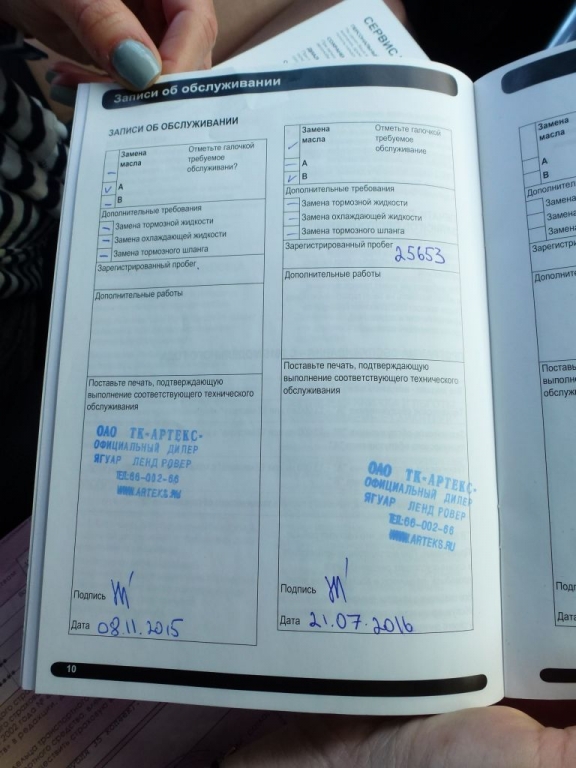 СЕРВИС
Записи об обслуживании
ЗАПИСИ ОБ ОБСЛУЖИВАНИИ
Замена масла
Отметьте галочкой требуемое обслуживани?
A
B
Дополнительные требования
Замена тормозной жидкости
Замена охлаждающей жидкости
Замена тормозного шланга
Зарегистрированный пробег
Дополнительные работы
Поставьте печать, подтверждающую
выполнение соответствующего технического
обслуживания
ОАО ТК-АРТЕКС-
ОФИЦИАЛЬНЫЙ ДИЛЕР
ЯГУАР ЛЕНД РОВЕР
ТЕЛ:66-002-66
WWW.ARTEKS.RU
Подпись
Дата 08.11.2015
Замена масла
Отметьте галочкой требуемое обслуживание
A
B
Дополнительные требования
Замена тормозной жидкости
Замена охлаждающей жидкости
Замена тормозного шланга
Зарегистрированный пробег 25653
Дополнительные работы
Поставьте печать, подтверждающую
выполнение соответствующего технического
обслуживания
ОАО ТК-АРТЕКС-
ОФИЦИАЛЬНЫЙ ДИЛЕР
ЯГУАР ЛЕНД РОВЕР
ТЕЛ:66-002-66
WWW.ARTEKS.RU
Подпись
Дата 21.07.2016
10
Замена
масла
A
B
Замена
Замена
Замена
Подпись
Дата